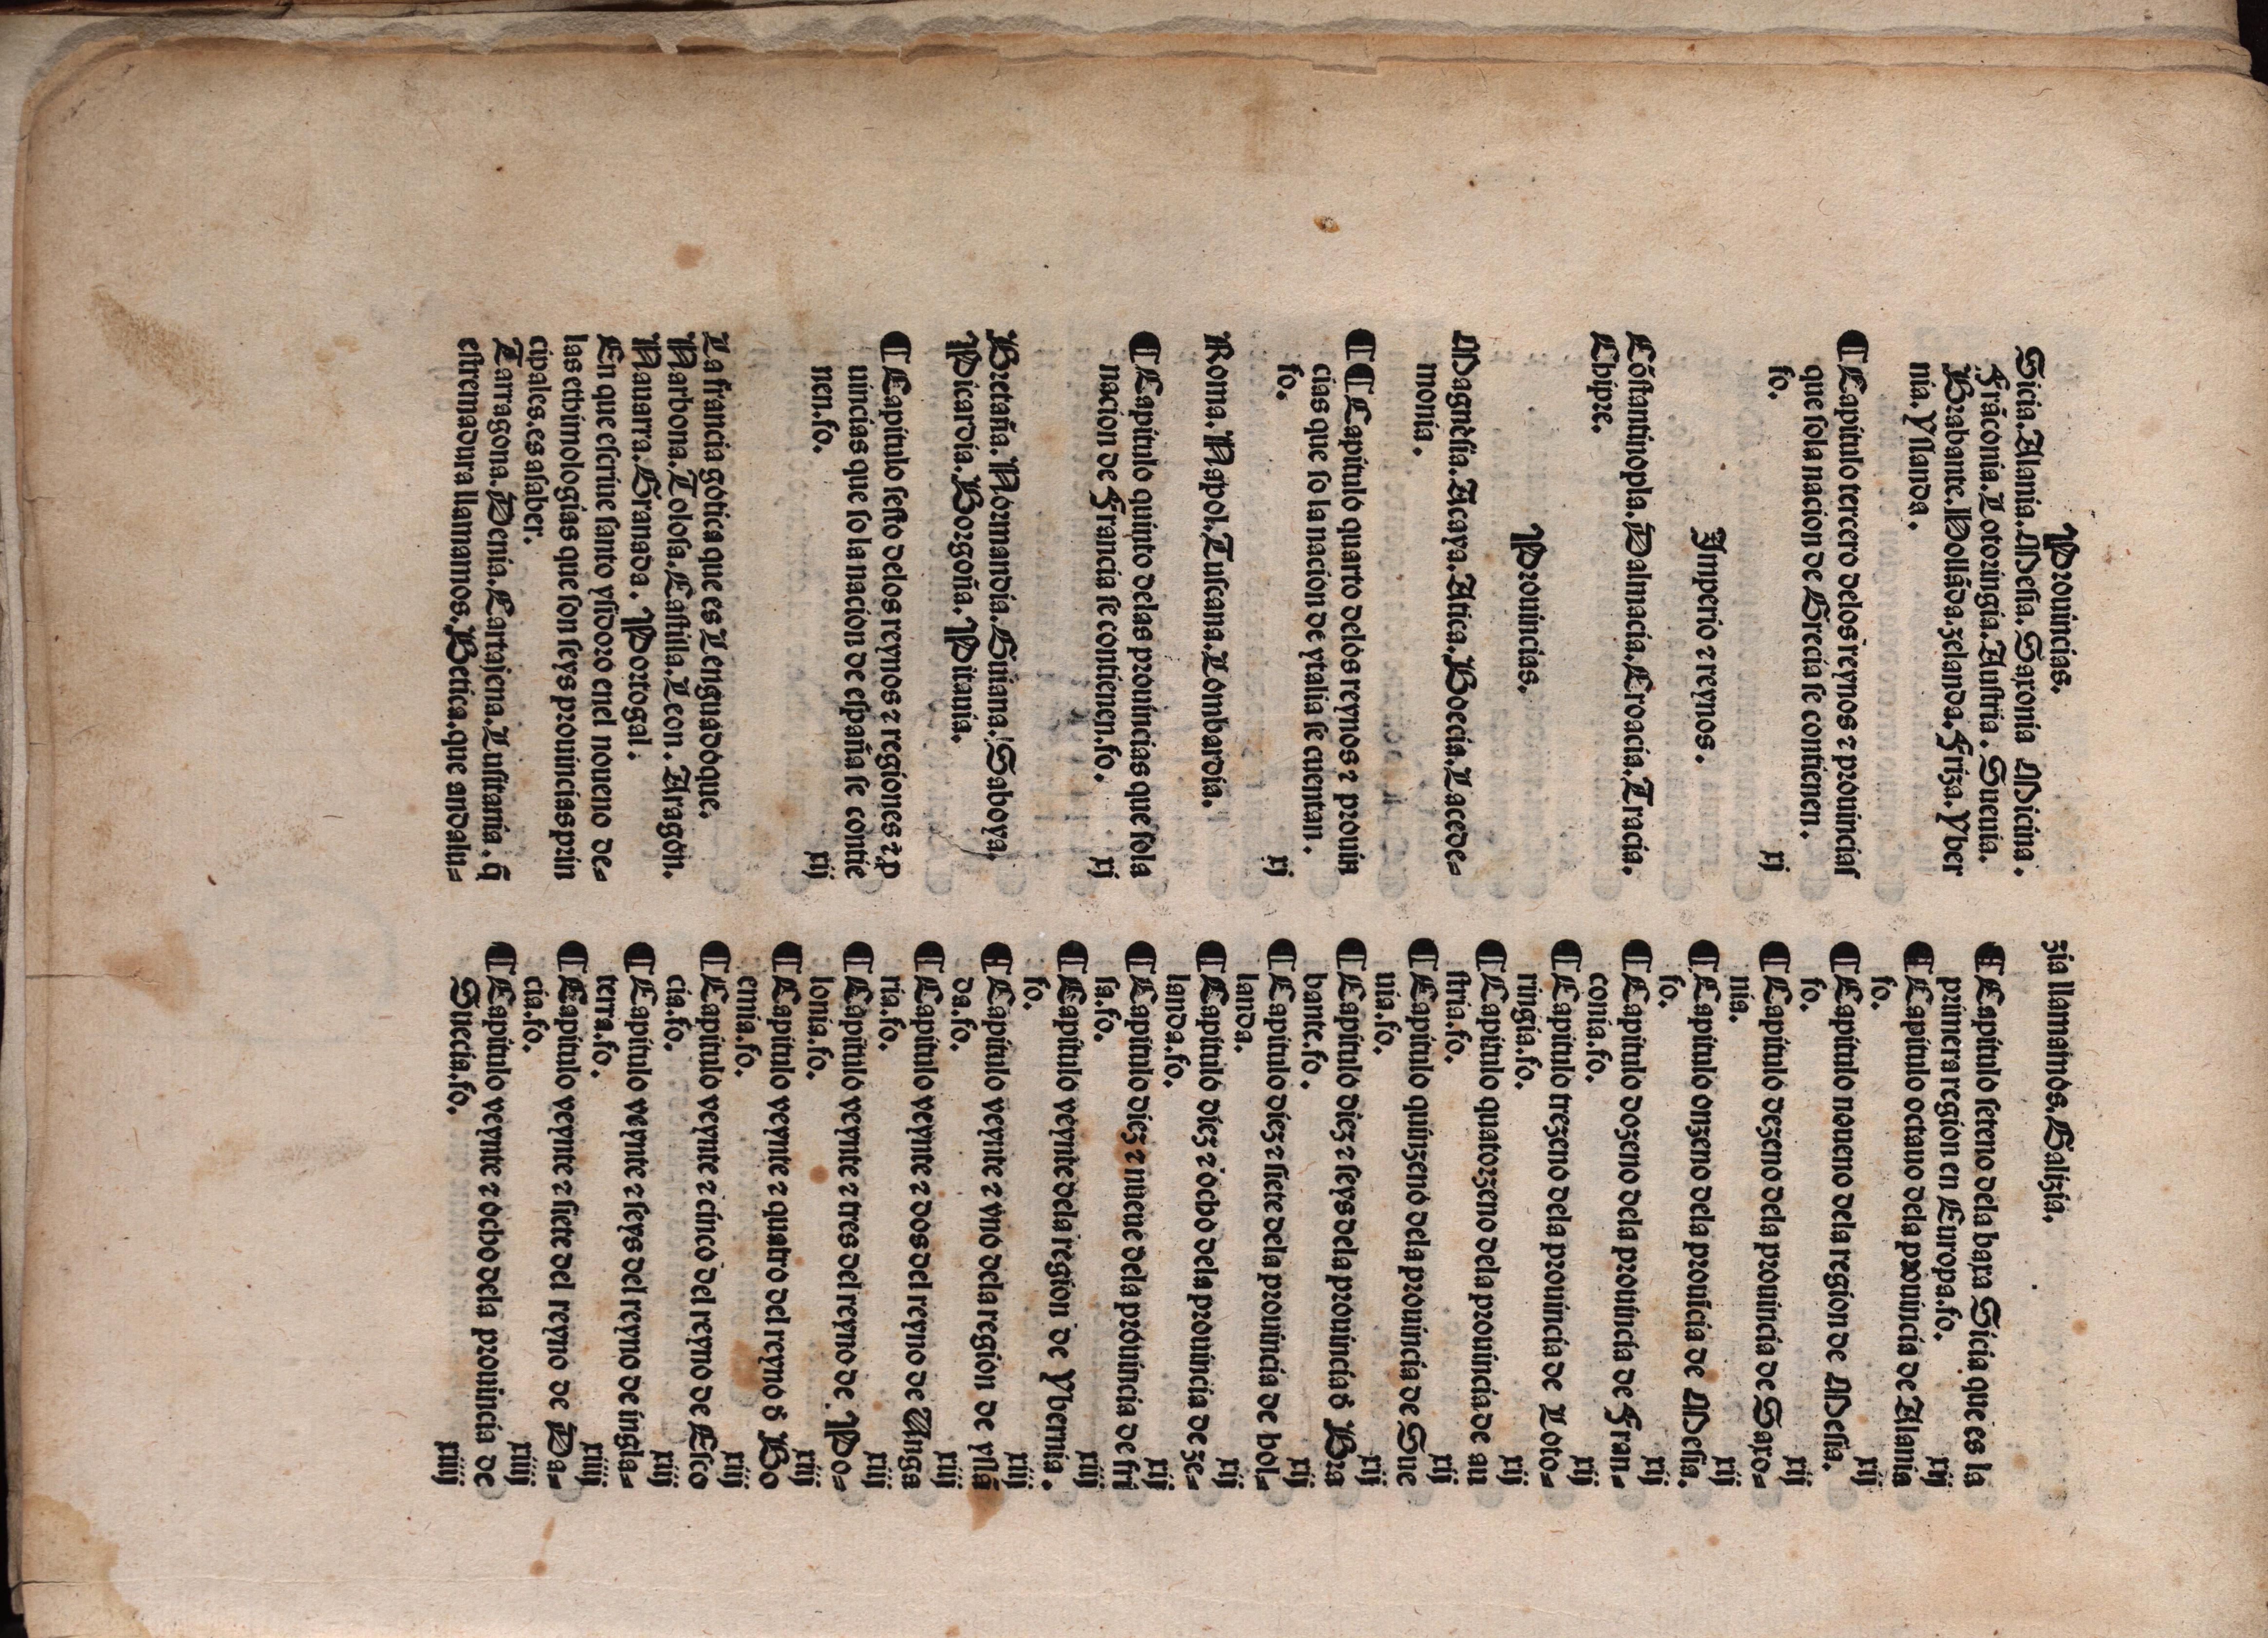 Prouincias.
Sicia. Alania. Mesia. Saxonia Micina.
Frãconia. Lotoringia. Austria. Sueuia.
Brabante. Hollãda. zelanda. Friza. Yber
nia. Yslanda.
¶ Capitulo tercero delos reynos ⁊ prouincias
que so la nacion de Grecia se contienen.
fo. xj
Imperio ⁊ reynos.
Cõstantinopla. Dalmacia. Croacia. Tracia.
Chipre.
Prouincias.
Magnesia. Acaya. Atica. Boecia. Lacede-
monia.
¶¶ Capitulo quarto delos reynos ⁊ prouin
cias que so la nacion de ytalia se cuentan.
fo. xj
Roma. Napol. Tuscana. Lombardia.
¶ Capitulo quinto delas prouincias que sola
nacion de Francia se contienen. fo. xj
Bretaña. Normandia. Guiana. Saboya.
Picardia. Borgoña. Pitauia.
¶ Capitulo sesto delos reynos ⁊ regiones ⁊ ꝓ
uincias que so la nacion de españa se contie
nen. fo. xij
La francia gotica que es Lenguadoque.
Narbona. Tolosa. Castilla. Leon. Aragon.
Nauarra. Granada. Portogal.
En que escriue santo ysidoro enel noueno de-
las ethimologias que son seys prouincias prin
cipales. es asaber.
Tarragona. Denia. Cartajena. Lusitania. q̃
estremadura llamamos. Betica. que andalu-
zia llamamos. Galizia.
¶ Capitulo seteno dela baxa Sicia que es la
primera region en Europa. fo. xij
¶ Capitulo octauo dela prouincia de Alania
fo. xij
¶ Capitulo noueno dela region de Mesia.
fo. xij
¶ Capitulo dezeno dela prouincia de Saxo-
nia. xij
¶ Capitulo onzeno dela prouĩcia de Mesia.
fo. xij
¶ Capitulo dozeno dela prouincia de Fran-
conia. fo. xij
¶ Capitulo trezeno dela prouincia de Loto-
ringia. fo. xij
¶ Capitulo quatorzeno dela prouincia de au
stria. fo. xij
¶ Capitulo quinzeno dela prouincia de Sue
uia. fo. xij
¶ Capitulo diez ⁊ seys dela prouincia đ Bra
bante. fo. xij
¶ Capitulo diez ⁊ siete dela prouincia de hol-
landa. xij
¶ Capitulo diez ⁊ ocho dela prouincia de ze-
landa. fo. xij
¶ Capitulo diez ⁊ nueue dela prouincia de fri
sa. fo. xiij
¶ Capitulo veynte dela region de Ybernia.
fo. xiij
¶ Capitulo veynte ⁊ vno dela region de yslã
da. fo. xiij
¶ Capitulo veynte ⁊ dos del reyno de Unga
ria. fo. xiij
¶ Capitulo veynte ⁊ tres del reyno de Po-
lonia. fo. xiij
¶ Capitulo veynte ⁊ quatro del reyno đ Bo
emia. fo. xiij
¶ Capitulo veynte ⁊ cinco del reyno de Esco
cia. fo. xiij
¶ Capitulo veynte ⁊ seys del reyno de ingla-
terra. fo. xiij
¶ Capitulo veynte ⁊ siete del reyno de Da-
cia. fo. xiiij
¶ Capitulo veynte ⁊ ocho dela prouincia de
Suecia. fo. xiiij